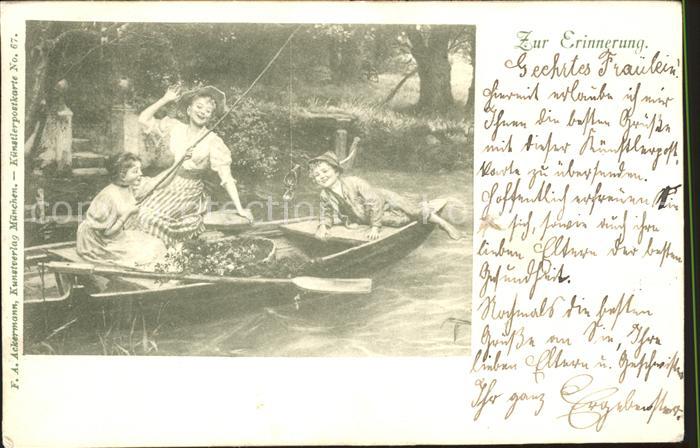 Zur Erinnerung.
Geehrtes Fräulein!
Hiermit erlaube ich mir
Ihnen die besten Grüße
mit dieser Künstlerpost,
karte zu übersenden.
Hoffentlich erfreuen Sie
sich, sowie auch ihre
lieben Eltern der besten
Gesundheit.
Nochmals die besten
Grüße an Sie, Ihre
lieben Eltern u. Geschwister
Ihr ganz Ergebenster.
F. A. Ackermann, Kunstverlag München. — Künstlerpostkarte No. 67.
copyright protection